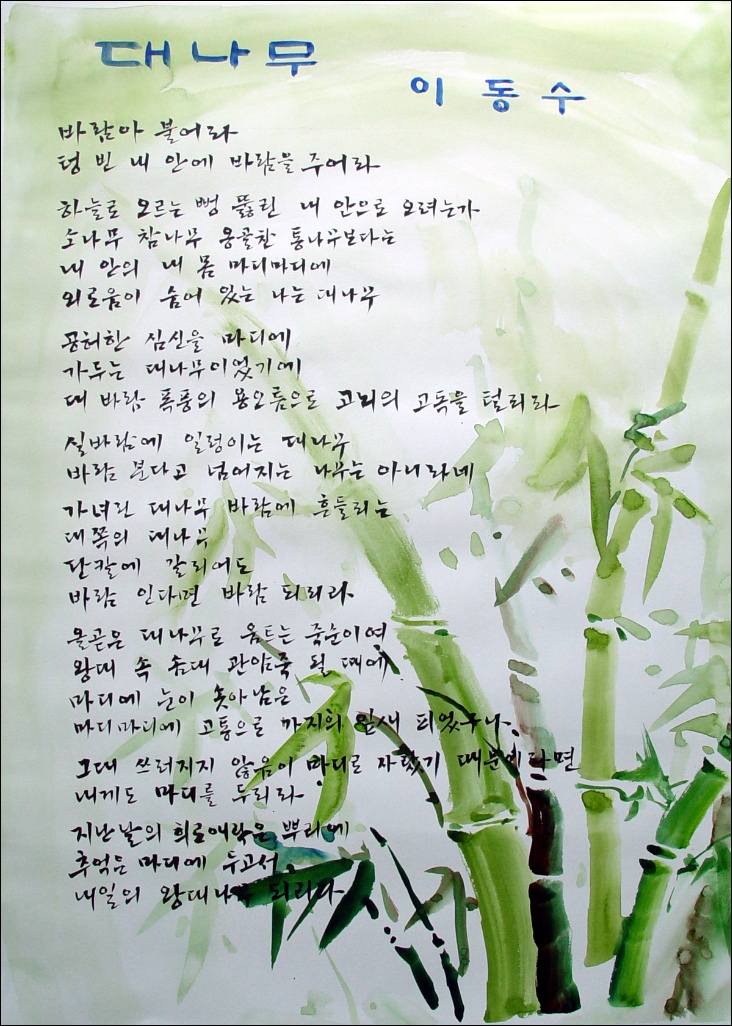 대나무
이동수
바람아 불어라
텅 빈 내 안에 바람을 주어라
하늘로 오르는 뻥 뚫린 내 안으로 오려는가
소나무 참나무 옹골찬 통나무보다는
내 안의 내 몸 마디마디에
외로움이 숨어 있는 나는 대나무
공허한 심신을 마디에
가두는 대나무이었기에
대 바람 폭풍의 용오름으로 고뇌의 고독을 털리라
실바람에 일렁이는 대나무
바람 분다고 넘어지는 나무는 아니라네
가녀린 대나무 바람에 흔들리는
대쪽의 대나무
단칼에 갈리어도
바람 인다면 바람 되리라
올곧은 대나무로 움트는 죽순이여
왕대 속 솜대 관암죽 될 때에
마디에 눈이 솟아남은
마디마디에 고통으로 가지의 잎새 피었구나
그대 쓰러지지 않음이 마디로 자랐기 때문이라면
내게도 마디를 두리라
지난날의 희로애락은 뿌리에
추억은 마디에 두고서
내일의 왕대나무 되리라